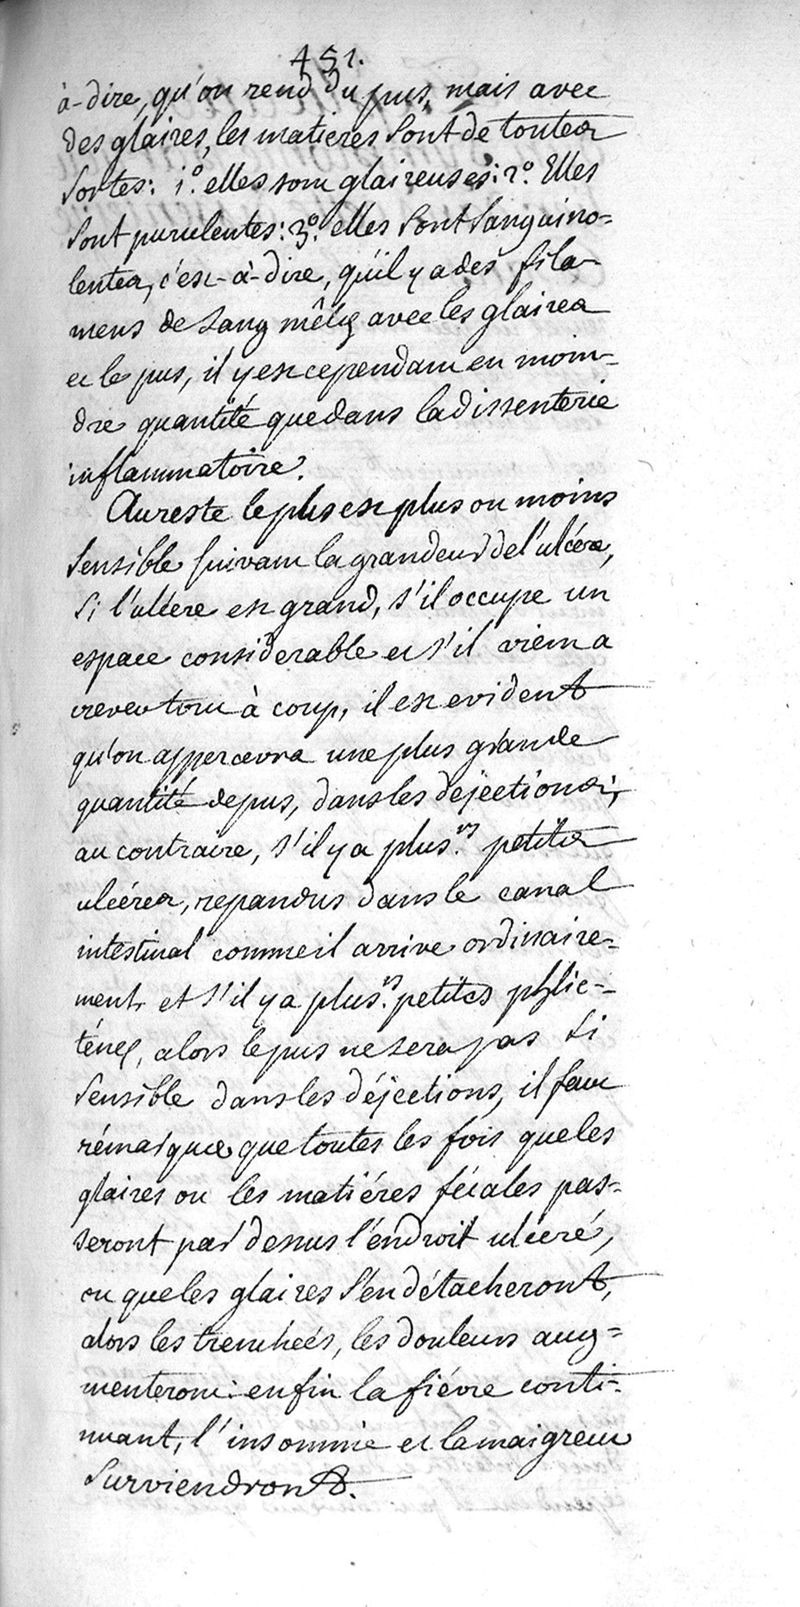 451.
à-dire, qu'on rend du pus, mais avec
des glaires, les matieres sont de toutes
sortes: 1.° elles sont glaireuses: 2.° Elles
sont purulentes: 3.° elles sont sanguino-
lentes, c'est-à-dire, qu'il y a des fila-
mens de sang mêlés avec les glaires
et le pus, il y est cependant en moin-
dre quantité que dans la dissenterie
inflammatoire.
Au reste le plus est plus ou moins
sensible suivant la grandeur de l'ulcére,
si l'ulcere est grand, s'il occupe un
espace considerable et s'il vient a
crever tout à coup, il est evident
qu'on appercevra une plus grande
quantité de pus, dans les déjections;
au contraire, s'il y a plus.rs petites
ulcéres, repandus dans le canal
intestinal comme il arrive ordinaire-
ment, et s'il y a plus.rs petites phlic-
ténes, alors le pus ne sera pas si
sensible dans les déjections, il faut
rémarquer que toutes les fois que les
glaires ou les matiéres fécales pas-
seront par dessus l'endroit ulceré,
ou que les glaires s'en détacheront,
alors les trenchées, les douleurs aug-
menteront: enfin la fiévre conti-
nuant, l'insomnie et la maigreur
surviendront.